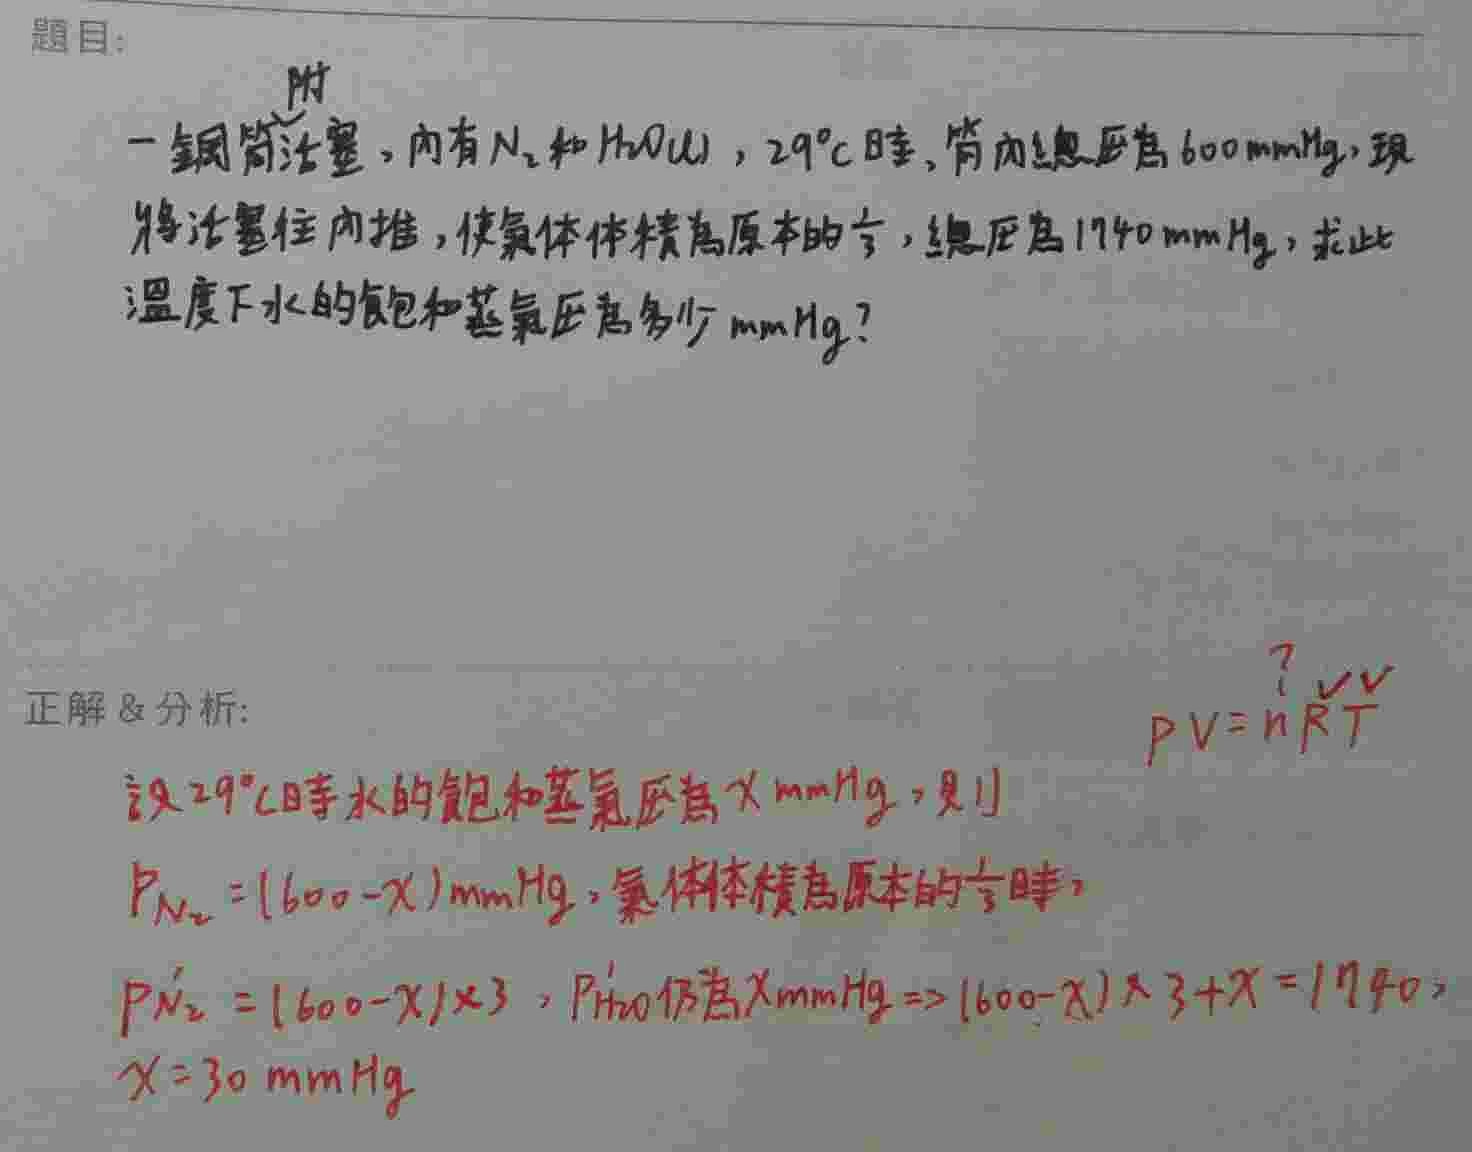 題目:
附
一鋼筒活塞，內有N₂和H₂O(l)，29°C時，筒內總壓為600mmHg，現
將活塞往內推，使氣体体積為原本的1/3，總压為1740mmHg，求此
溫度下水的飽和蒸氣压為多少mmHg?
?
✓✓
正解&分析:
PV=nRT
設29°C時水的飽和蒸氣压為x mmHg，則
P_N₂=(600-x)mmHg，氣体体積為原本的1/3時，
P'_N₂=(600-x)×3，P'_H₂O仍為xmmHg=>(600-x)×3+x=1740，
x=30 mmHg